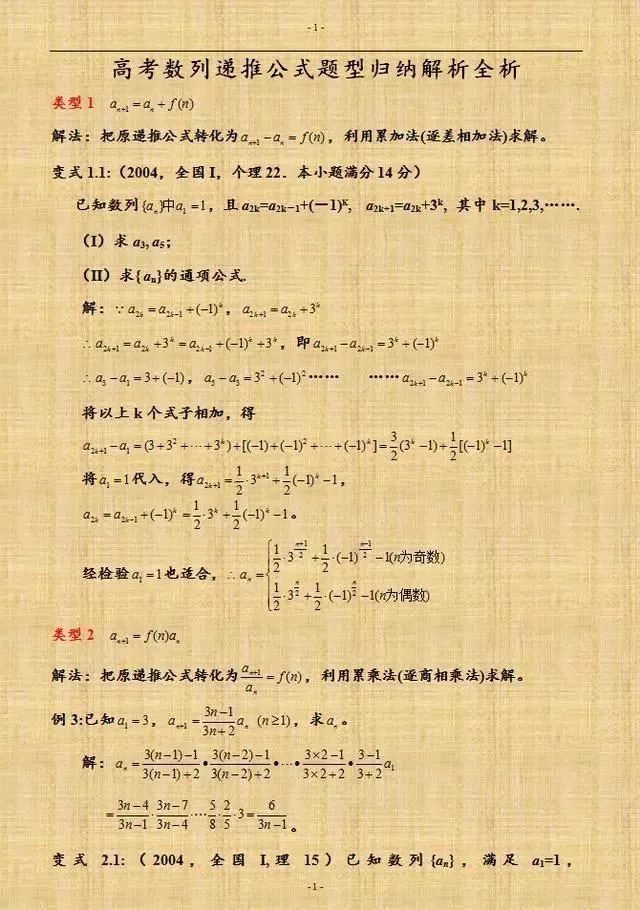 - 1 -
高考数列递推公式题型归纳解析全析
类型 1 a_{n+1} = a_n + f(n)
解法：把原递推公式转化为a_{n+1} − a_n = f(n)，利用累加法(逐差相加法)求解。
变式 1.1:（2004，全国 I，个理 22．本小题满分 14 分）
已知数列{a_n}中a_1 = 1，且 a2k=a2k−1+(－1)^K, a2k+1=a2k+3^k, 其中 k=1,2,3,…….
（I）求 a3, a5；
（II）求{ an}的通项公式.
解：∵ a_{2k} = a_{2k−1} + (−1)^k，a_{2k+1} = a_{2k} + 3^k
∴ a_{2k+1} = a_{2k} + 3^k = a_{2k−1} + (−1)^k + 3^k，即 a_{2k+1} − a_{2k−1} = 3^k + (−1)^k
∴ a_3 − a_1 = 3 + (−1)，a_5 − a_3 = 3^2 + (−1)^2 …… ……a_{2k+1} − a_{2k−1} = 3^k + (−1)^k
将以上 k 个式子相加，得
a_{2k+1} − a_1 = (3 + 3^2 + ⋯ + 3^k) + [(−1) + (−1)^2 + ⋯ + (−1)^k] = 3/2 (3^k − 1) + 1/2 [(−1)^k − 1]
将a_1 = 1代入，得a_{2k+1} = 1/2 · 3^{k+1} + 1/2 (−1)^k − 1，
a_{2k} = a_{2k−1} + (−1)^k = 1/2 · 3^k + 1/2 (−1)^k − 1。
经检验a_1 = 1也适合，∴ a_n = { 1/2 · 3^{(n+1)/2} + 1/2 · (−1)^{(n−1)/2} − 1(n为奇数)
1/2 · 3^{n/2} + 1/2 · (−1)^{n/2} − 1(n为偶数)
类型 2 a_{n+1} = f(n)a_n
解法：把原递推公式转化为a_{n+1}/a_n = f(n)，利用累乘法(逐商相乘法)求解。
例 3:已知a_1 = 3，a_{n+1} = (3n−1)/(3n+2) a_n (n ≥ 1)，求a_n。
解：a_n = (3(n−1)−1)/(3(n−1)+2) • (3(n−2)−1)/(3(n−2)+2) • ⋯ • (3×2−1)/(3×2+2) • (3−1)/(3+2) a_1
= (3n−4)/(3n−1) · (3n−7)/(3n−4) ⋯ 5/8 · 2/5 · 3 = 6/(3n−1)。
变式 2.1:（2004，全国 I,理 15）已知数列{an}，满足 a1=1，
- 1 -